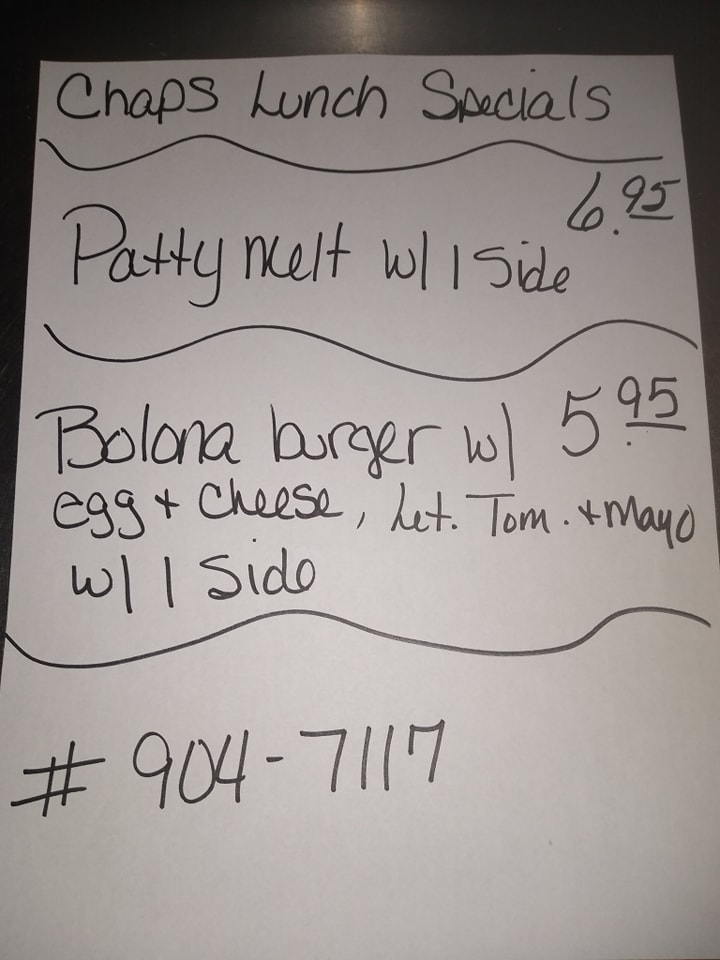 Chaps Lunch Specials
6.95
Patty melt w/ 1 Side
Bolona burger w/ 5.95
egg + Cheese, Let. Tom. + Mayo
w/ 1 Side
# 904-7117